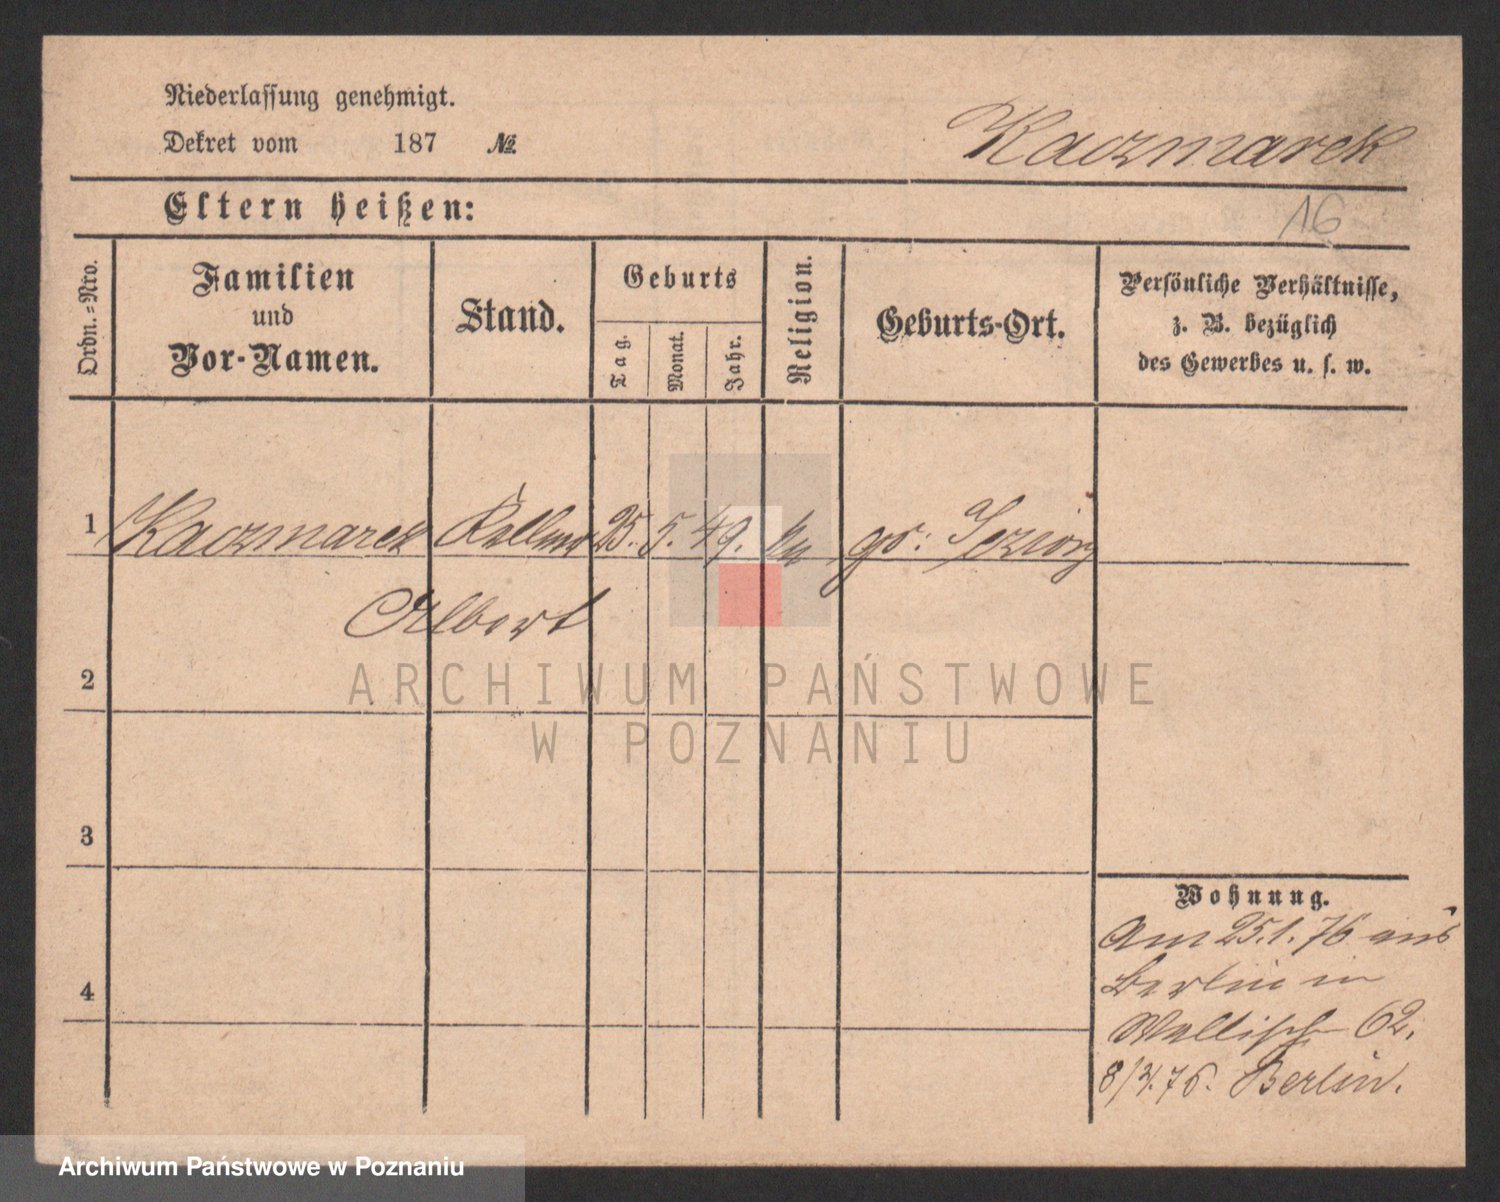 Niederlassung genehmigt.
Dekret vom 187 №
Kaczmarek
Eltern heißen:
16
Ordn.-Nro.
Familien
und
Vor-Namen.
Stand.
Geburts
Tag.
Monat.
Jahr.
Religion.
Geburts-Ort.
Persönliche Verhältnisse,
z. B. bezüglich
des Gewerbes u. s. w.
1 Kaczmarek Kellner 25. 5. 49. gr:
Albert
2
3
4
Wohnung.
Am 25.1.76 aus
Berlin in
Wallisch 62.
Berlin.
ARCHIWUM PAŃSTWOWE
W POZNANIU
Archiwum Państwowe w Poznaniu